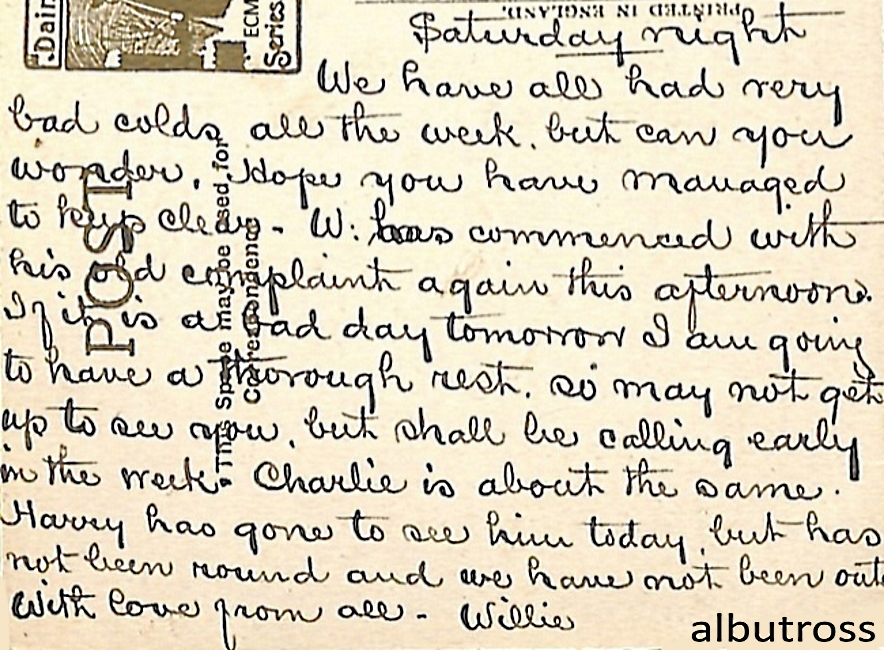 "Dain
ECM
Series
PRINTED IN ENGLAND.
Saturday night
We have all had very
bad colds all the week. but can you
wonder. Hope you have managed
to keep clear - W: has commenced with
his old complaint again this afternoon.
If it is a bad day tomorrow I am going
to have a thorough rest. so may not get
up to see you. but shall be calling early
in the week. Charlie is about the same.
Harvey has gone to see him today. but has
not been round and we have not been out
With love from all - Willie
POST
This Space may be used for
Correspondence
albutross